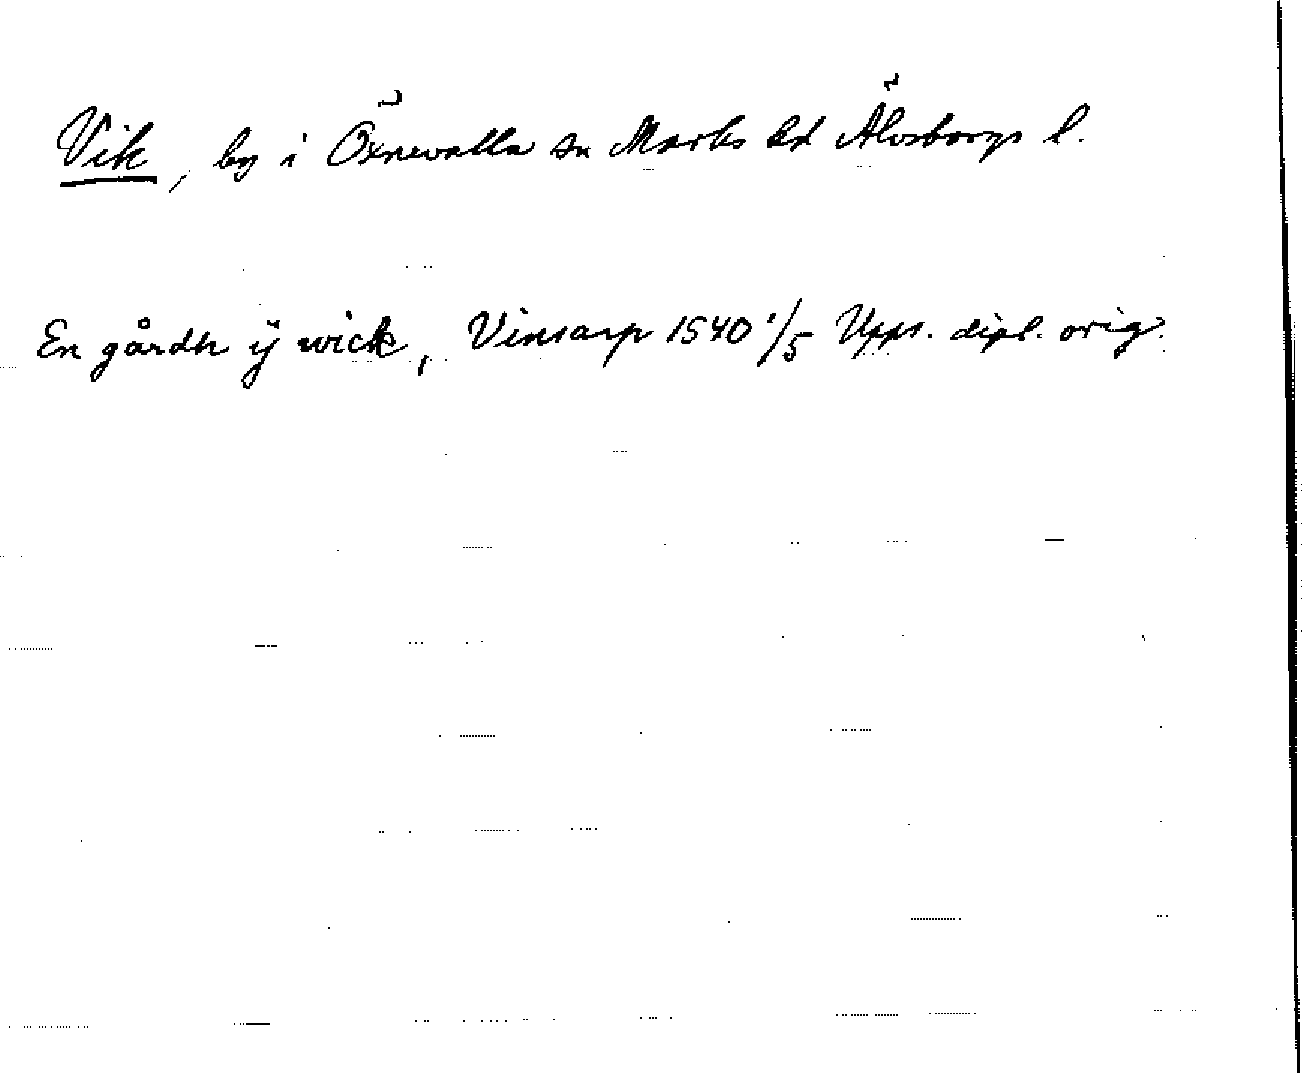 Vik, by i Öxnevalla sn Marks hd Älvsborgs l.
En gårdh ÿ wick, Vinsarp 1540 1/5 Upps. dipl. orig.